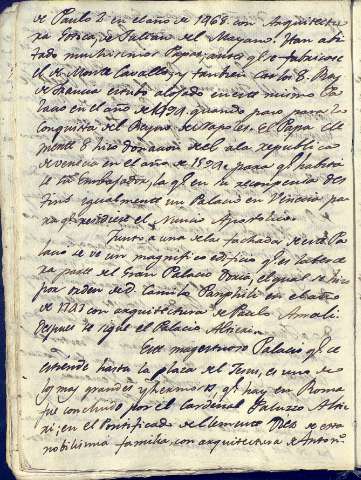 de Paulo 2 en el año de 1468 con Arquitectu-
ra Gotica, de Julian de Mayano. Han abi-
tado muchisimos Papas, antes qe se fabricase
el de Monte Cavallo, y tambien Carlos 8 Rey
de Francia estubo alojado en este mismo Pa-
lacio en el año de 1494 quando paso para la
conquista del Reyno de Napoles. El Papa Cle-
mente 8 hizo donacion de el a la republica
de Venecia en el año de 1594 para qe habita-
se su Embajador, la qe en su recompensa des-
tinó igualmente un Palacio en Venecia pa-
ra qe residiese el Nuncio Apostolico.
Junto a una de las fachadas de este Pa-
lacio se ve un magnifico edificio qe es la terce-
ra parte del Gran Palacio Doria, el qual se hizo
por orden de D. Camilo Panphili en el año
de 1743 con arquitectura de Paulo Amali
despues se sigue el Palacio Altieri.
Este magestuoso Palacio qe se
estiende hasta la plaza del Jesus, es uno de
los mas grandes y hermosos qe hay en Roma
fue concluido por el Cardenal Paluzzo Altie-
ri, en el Pontificado de Clemente Dies de esta
nobilisima familia, con arquitectura de Anton.o